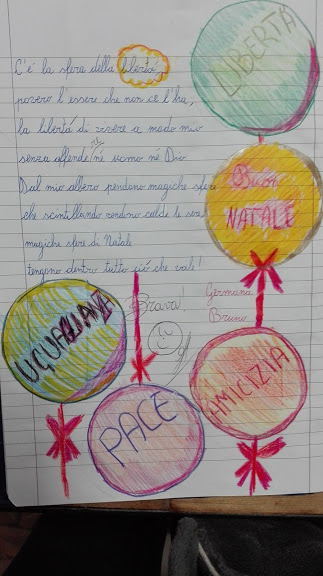 C'è la sfera della libertà,
povero l'essere che non ce l'ha,
la libertà di vivere a modo mio
senza offender né uomo né Dio
Dal mio albero pendono magiche sfere
che scintillando rendono calde le sere,
magiche sfere di Natale
tengono dentro tutto ciò che vale!
Brava!
Germana
Bruno
LIBERTÀ
Buon
NATALE
UGUAGLIANZA
PACE
AMICIZIA